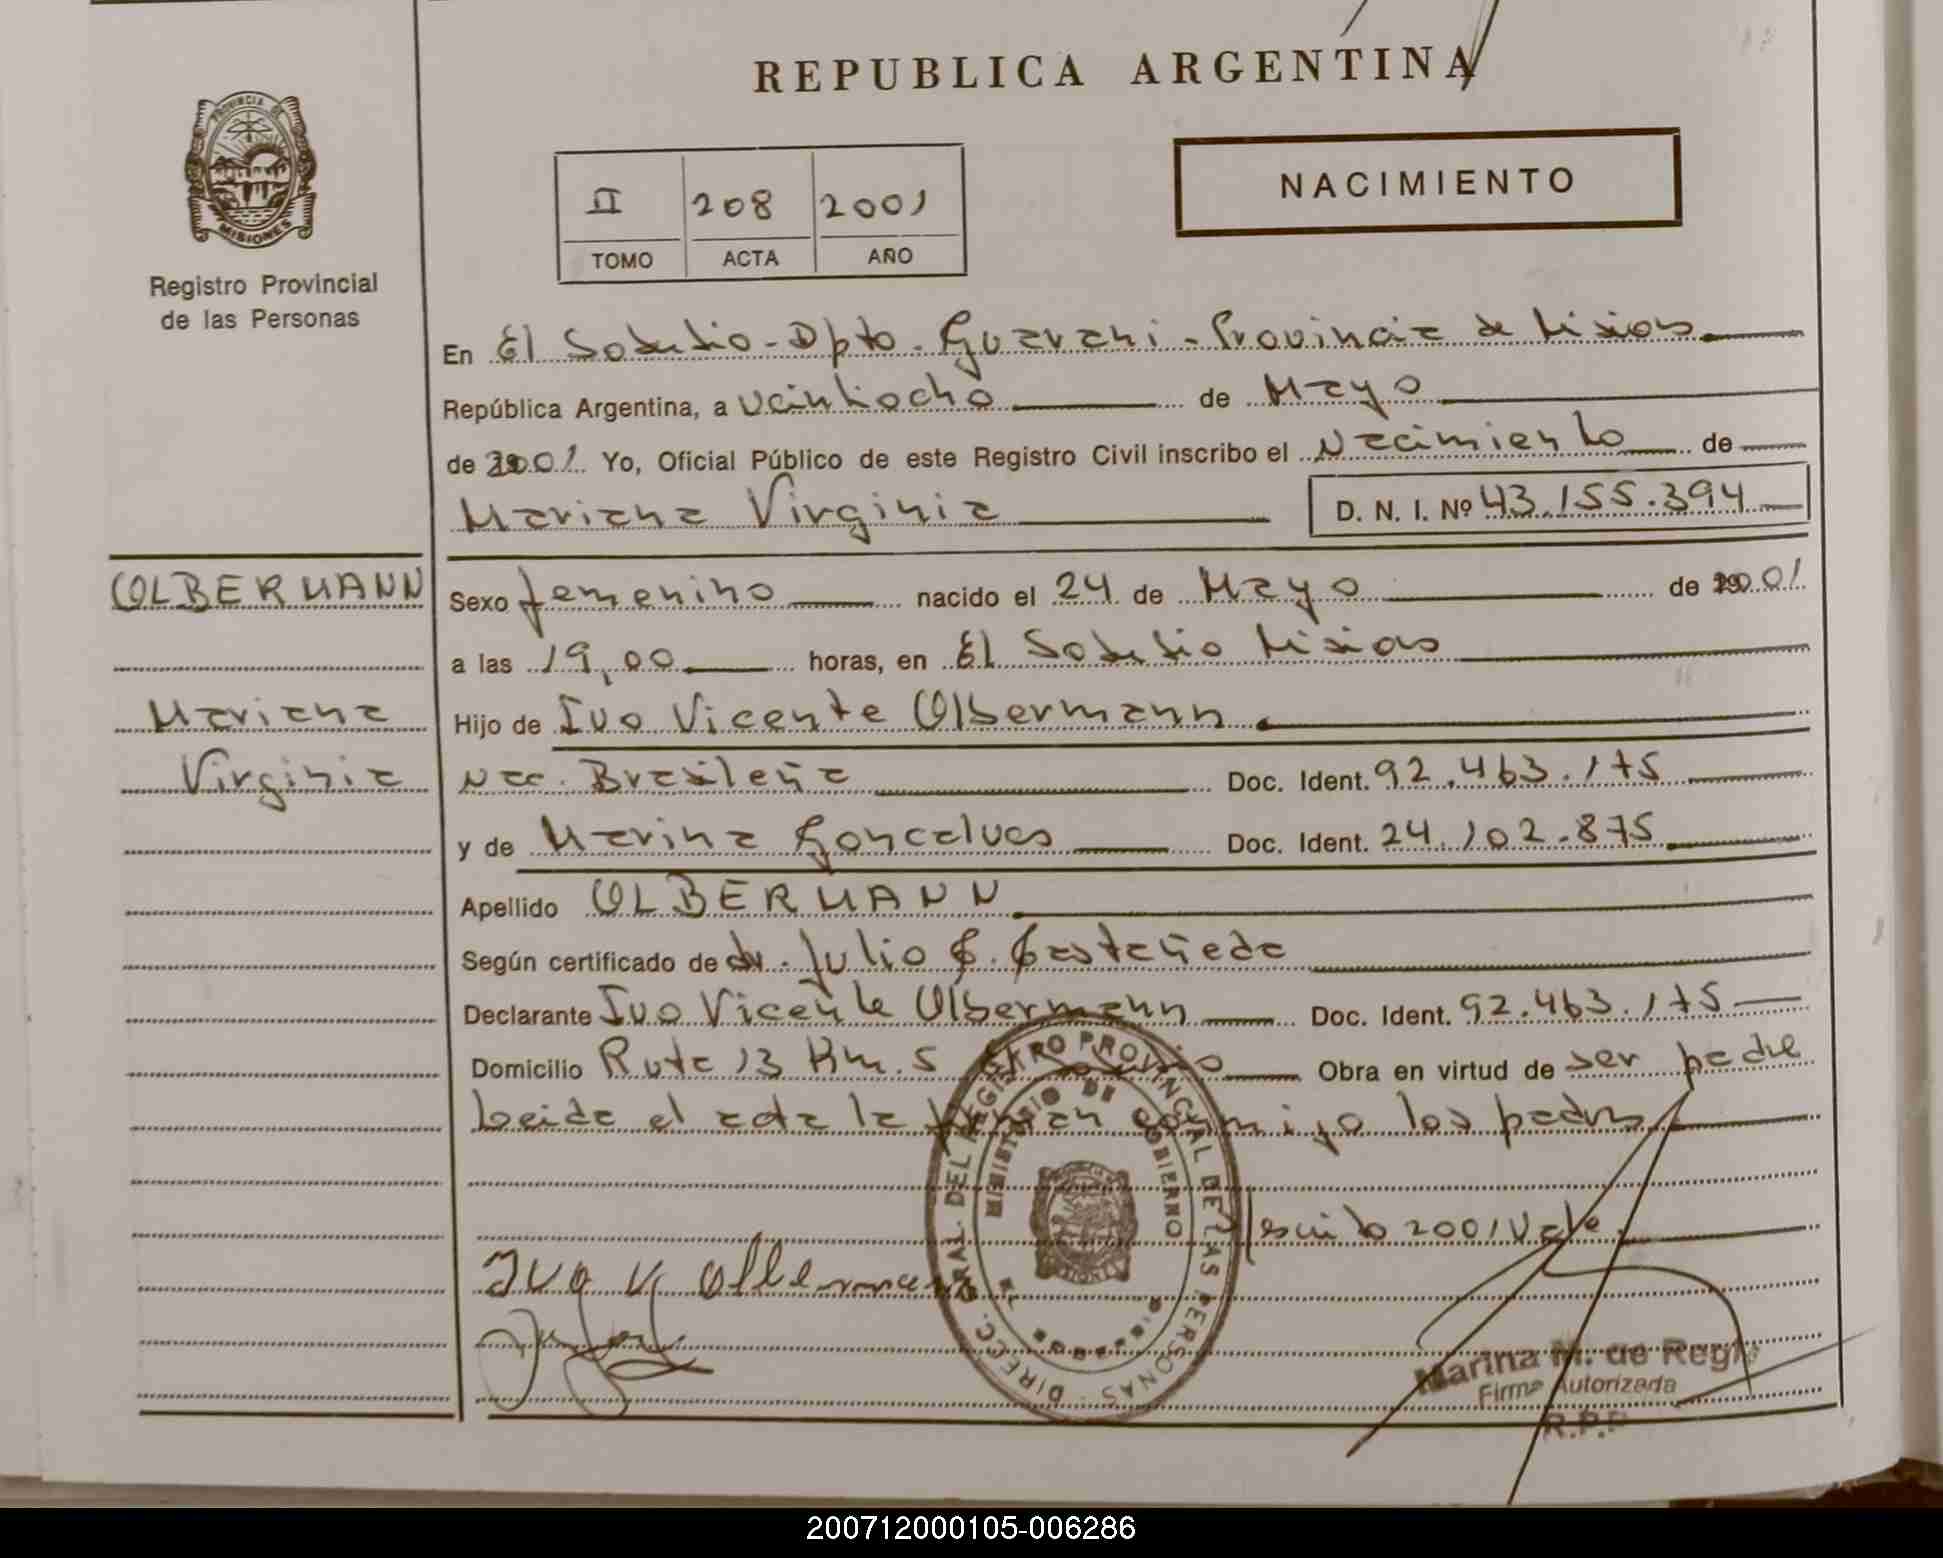 REPUBLICA ARGENTINA
PROVINCIA DE
MISIONES
Registro Provincial
de las Personas
II 208 2001
TOMO ACTA AÑO
NACIMIENTO
En El Soberbio - Dpto. Guarani - Provincia de Misiones
República Argentina, a veintiocho de Mayo
de 2001 Yo, Oficial Público de este Registro Civil inscribo el Nacimiento de
Mariana Virginia D. N. I. Nº 43.155.394
OLBERMANN
Mariana
Virginia
Sexo femenino nacido el 24 de Mayo de 2001
a las 19,00 horas, en El Soberbio Misiones
Hijo de Ivo Vicente Olbermann
Nac. Brasileña Doc. Ident. 92.463.175
y de Marina Goncalves Doc. Ident. 24.102.875
Apellido OLBERMANN
Según certificado de dr. Julio C. Castañeda
Declarante Ivo Vicente Olbermann Doc. Ident. 92.463.175
Domicilio Ruta 13 Km. 5 Obra en virtud de ser padre
Leida el acta la firman conmigo los padres
escrito 2001 Vale.
Ivo V. Olbermann
DIRECC. GRAL. DEL REGISTRO PROVINCIAL DE LAS PERSONAS
MINISTERIO DE GOBIERNO
Marina M. de Regis
Firma Autorizada
R.P.P
200712000105-006286